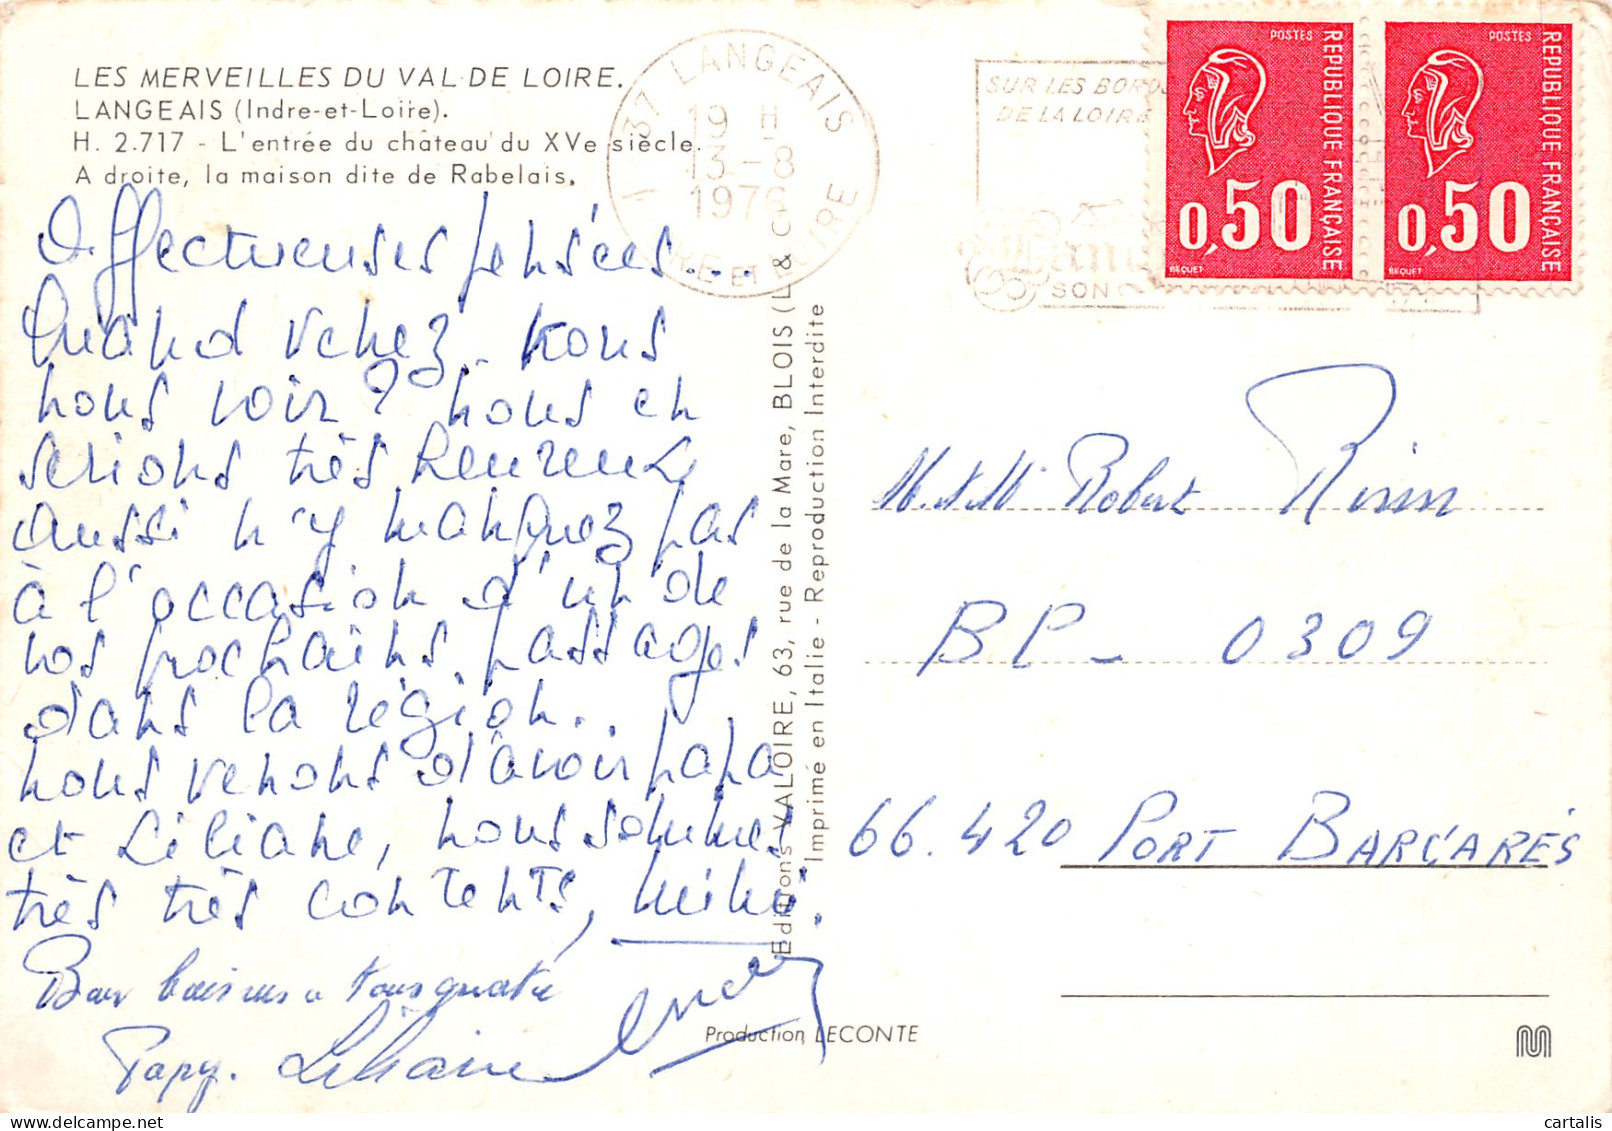 LES MERVEILLES DU VAL DE LOIRE.
LANGEAIS (Indre-et-Loire).
H. 2.717 - L'entrée du château du XVe siècle.
A droite, la maison dite de Rabelais.
37 LANGEAIS
19 H
13-8
1976
INDRE ET LOIRE
SUR LES BORDS
DE LA LOIRE
SON
POSTES
REPUBLIQUE FRANÇAISE
0,50
BEQUET
POSTES
REPUBLIQUE FRANÇAISE
0,50
BEQUET
Affectueuses pensées...
Quand venez-vous
nous voir? nous en
serions très heureux
aussi n'y manquez pas
à l'occasion d'un de
vos prochains passages
dans la région.
nous venons d'avoir papa
et Liliane, nous sommes
très très contents,
Bons baisers à tous quatre
Papy. Liliane
Editions VALOIRE, 63, rue de la Mare, BLOIS (L. & C.)
Imprimé en Italie - Reproduction Interdite
M. & M. Robert
BP - 0309
66.420 PORT BARCARÉS
Production LECONTE
cartalis